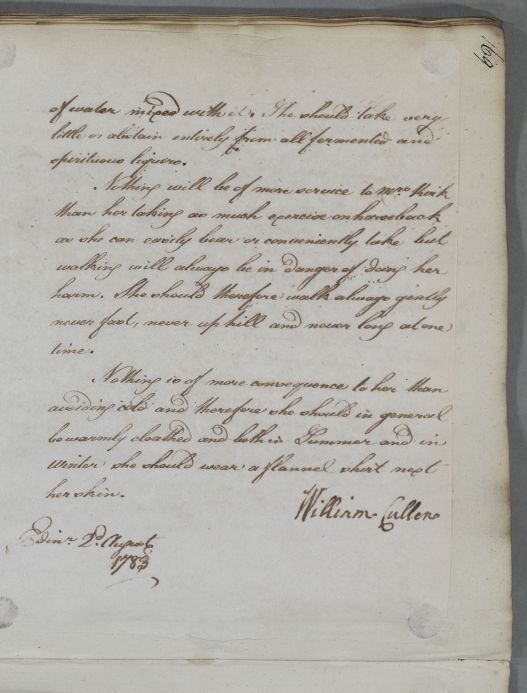 169
of water mixed with it. She should take very
little or abstain entirely from all fermented and
spirituous liquors.
Nothing will be of more service to Mrs
than her taking as much exercise on horseback
as she can easily bear or conveniently take but
walking will always be in danger of doing her
harm. She should therefore walk always gently
never fast, never up hill and never long at one
time.
Nothing is of more consequence to her than
avoiding cold and therefore she should in general
be warmly cloathed and both in Summer and in
winter she should wear a flannel shirt next
her skin.
William Cullen
Edinr. 2d. August
1783